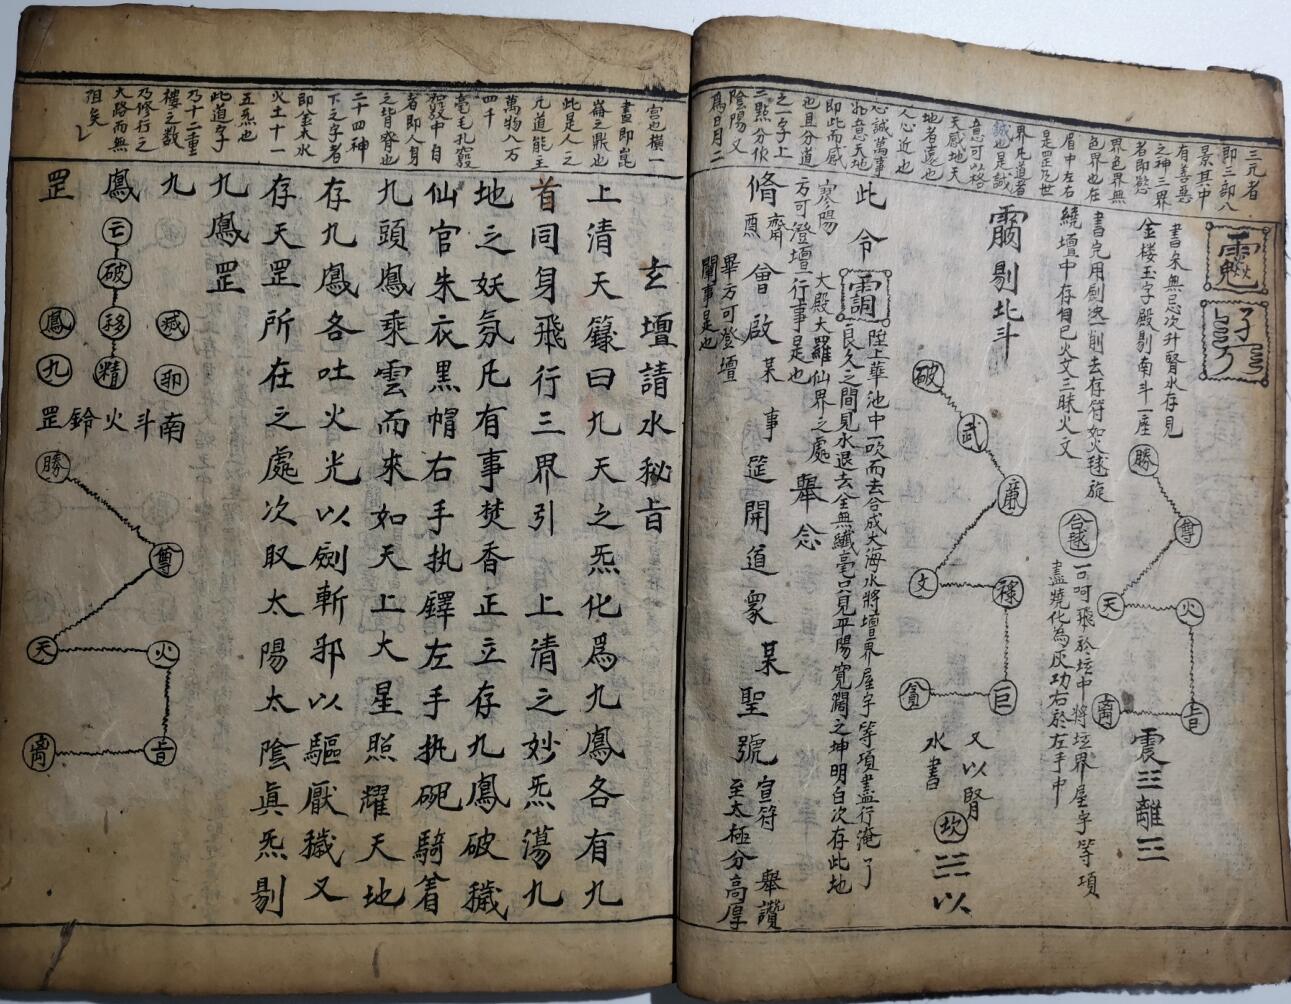 三元者
即三部八
景其中
有善惡
之神三界
者即慾
界色界無
色界也在
眉中左右
是罡乃世
界凡道者
誠也是誠
意可以格
天感地天
地者遠也
人心近也
心誠萬事
如意天地
即此而感
也且分道
之一字上
二點分作
陰陽又
爲日月二
書矣無忌次升腎水存見
金楼玉字殿剔南斗一座
勝
尊
天
火
震三離三
書完用劍決一削去存符如火毬旋
繞壇中存自己火文三昧火文
一口呵飛於坛中將坛界屋宇等項
盡燒化為灰功右於左手中
剔北斗
破
武
廉
文
祿
巨
貪
又以腎
水書
坎
以
此令
陞上華池中一吹而去合成大海水將壇界屋宇等項盡行淹了
良久之間見水退去全無纖毫只見平陽寬濶之坤明白次存此地
寥陽
大殿大羅仙界之處
方可澄壇行事是也
舉念
脩齋
會啟某事筵開道衆某聖號
宣符
至太極分高厚
舉讚
畢方可登壇
闡事是也
宫也橫一
畫即崑
崙之鼎也
此是人之
元道能主
萬物八万
四千
毫毛孔竅
下之字者
即金木水
火土十一
五炁也
此道字
乃十二重
樓之数
乃修行之
大路而無
徂矣
玄壇請水秘旨
上清天籙曰九天之炁化爲九鳳各有九
首同身飛行三界引上清之妙炁蕩九
地之妖氛凡有事焚香正立存九鳳破穢
仙官朱衣黑帽右手执鐸左手执碗騎着
九頭鳳乘雲而來如天上大星照耀天地
存九鳳各吐火光以劍斬邪以驅厭穢又
存天罡所在之處次取太陽太陰真炁剔
九鳳罡
九
鳳
罡
破
移
精
鳳
九
南斗火鈴罡
勝
尊
天
火